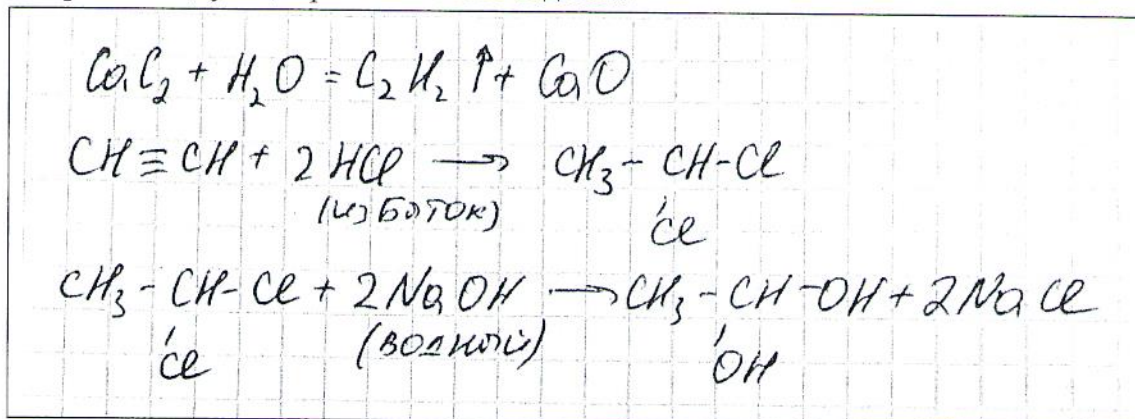 CaC₂ + H₂O = C₂H₂ ↑ + CaO
CH ≡ CH + 2 HCl → CH₃ - CH - Cl
(избыток)
Cl
CH₃ - CH - Cl + 2 NaOH → CH₃ - CH - OH + 2 NaCl
(водный)
Cl
OH